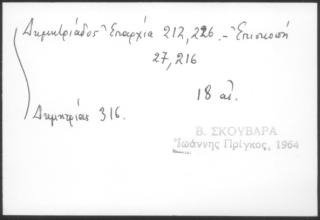 Δημητριάδος Ἐπαρχία 212, 226. - Ἐπισκοπή
27, 216
18 αἰ.
Δημητρίας 316.
Β. ΣΚΟΥΒΑΡΑ
Ἰωάννης Πρίγκος, 1964